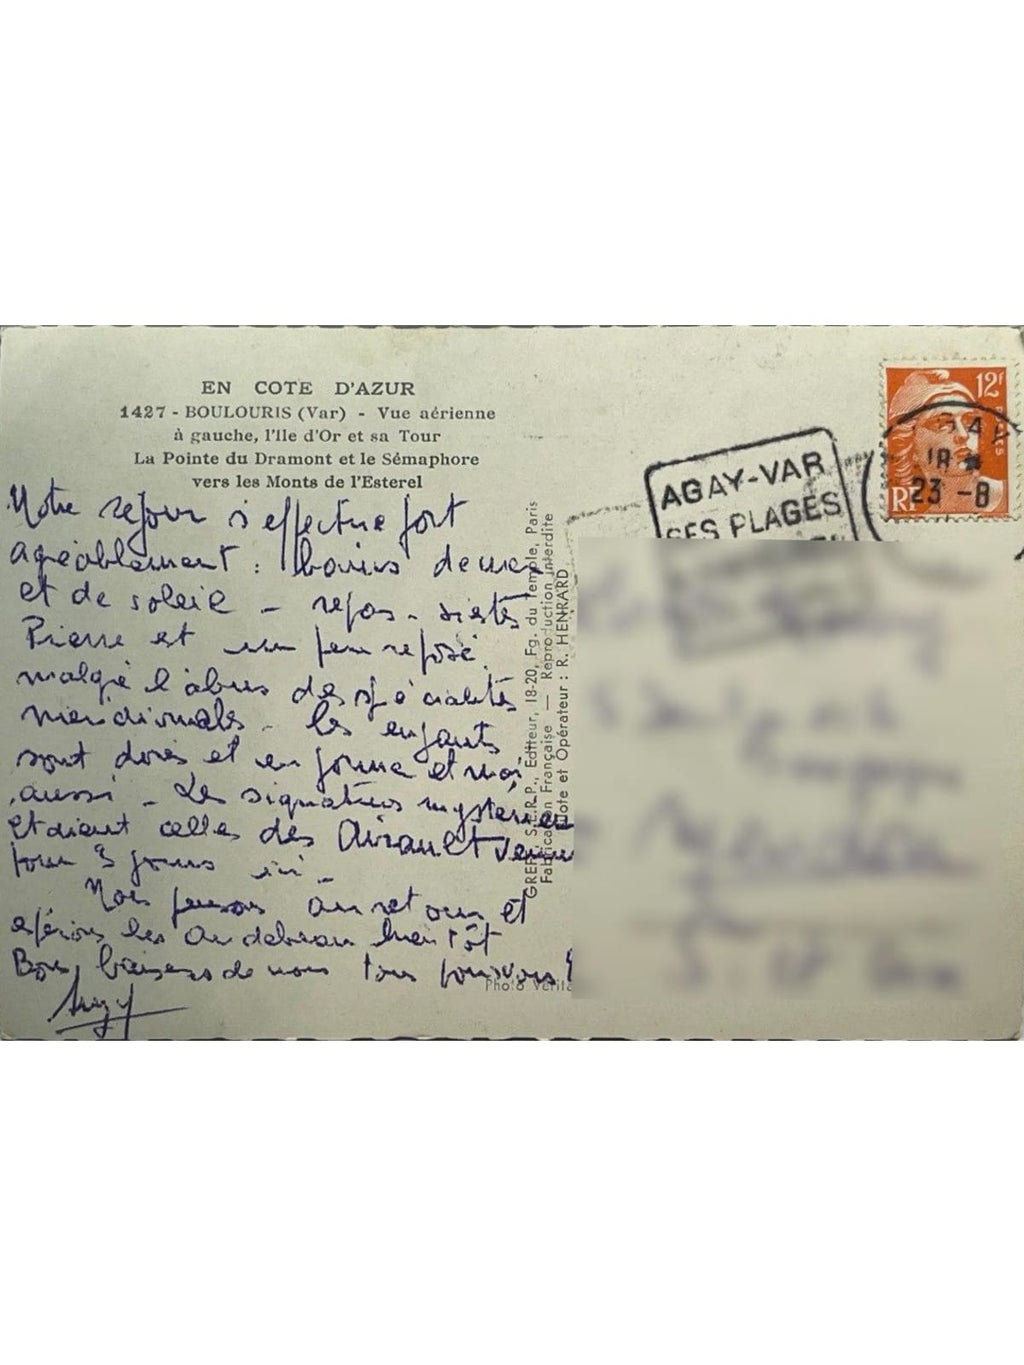 EN COTE D'AZUR
1427 - BOULOURIS (Var) - Vue aérienne
à gauche, l'Ile d'Or et sa Tour
La Pointe du Dramont et le Sémaphore
vers les Monts de l'Esterel
Notre séjour s'effectue fort
agréablement : bains de mer
et de soleil - repos - siestes
Pierre est un peu reposé
malgré l'abus des spécialités
méridionales - les enfants
sont dorés et en forme et moi
aussi - Les signatures
étaient celles des Airault venus
pour 3 jours ici -
Nous pensons au retour et
espérons les bientôt
Bons baisers de nous tous pour vous
Suzy
GREFF, S.E.R.P., Editeur, 18-20, Fg. du Temple, Paris
Fabrication Française — Reproduction interdite
Pilote et Opérateur : R. HENRARD
Photo
AGAY-VAR
SES PLAGES
12f
RF
18
23 -8